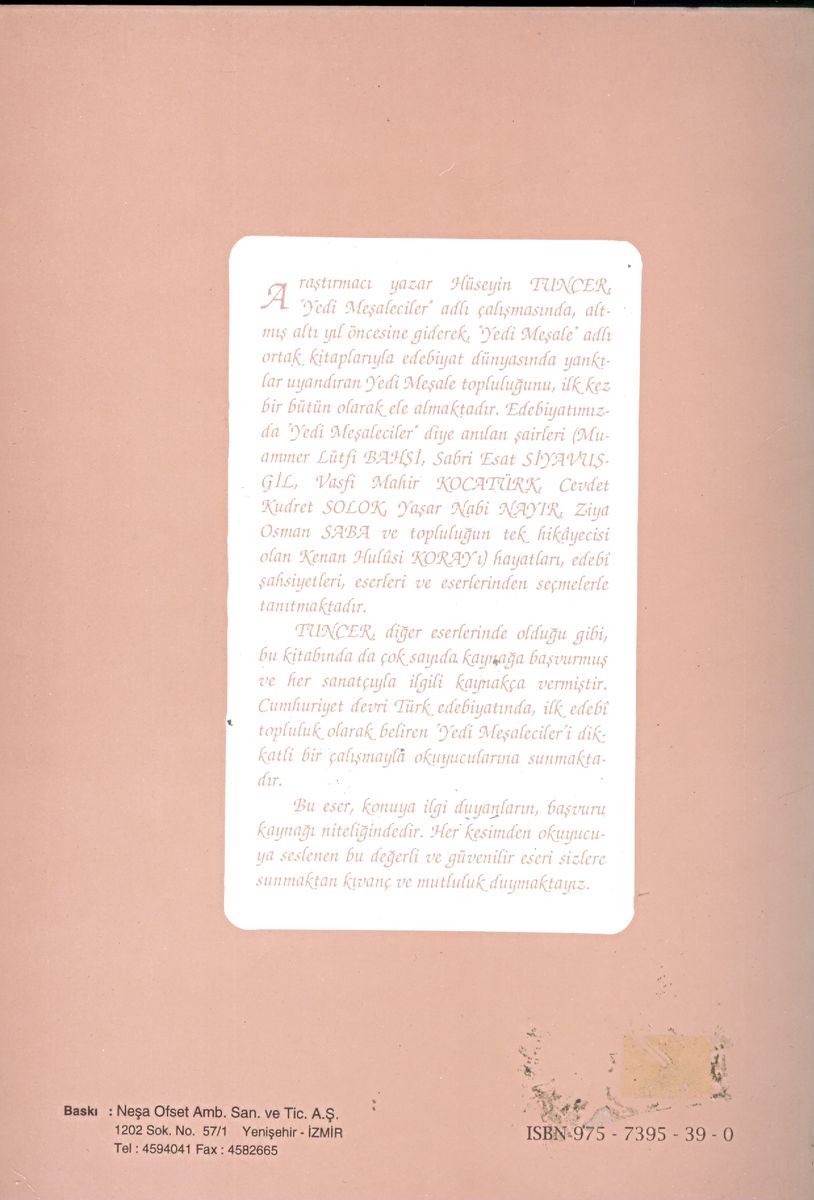 Araştırmacı yazar Hüseyin TUNCER,
"Yedi Meşaleciler" adlı çalışmasında, alt-
mış altı yıl öncesine giderek, "Yedi Meşale" adlı
ortak kitaplarıyla edebiyat dünyasında yankı-
lar uyandıran Yedi Meşale topluluğunu, ilk kez
bir bütün olarak ele almaktadır. Edebiyatımız-
da "Yedi Meşaleciler" diye anılan şairleri (Mu-
ammer Lütfi BAHŞİ, Sabri Esat SİYAVUŞ-
GİL, Vasfi Mahir KOCATÜRK, Cevdet
Kudret SOLOK, Yaşar Nabi NAYIR, Ziya
Osman SABA ve topluluğun tek hikâyecisi
olan Kenan Hulûsi KORAY'ı) hayatları, edebî
şahsiyetleri, eserleri ve eserlerinden seçmelerle
tanıtmaktadır.
TUNCER, diğer eserlerinde olduğu gibi,
bu kitabında da çok sayıda kaynağa başvurmuş
ve her sanatçıyla ilgili kaynakça vermiştir.
Cumhuriyet devri Türk edebiyatında, ilk edebî
topluluk olarak beliren "Yedi Meşaleciler'i dik-
katli bir çalışmayla okuyucularına sunmakta-
dır.
Bu eser, konuya ilgi duyanların, başvuru
kaynağı niteliğindedir. Her kesimden okuyucu-
ya seslenen bu değerli ve güvenilir eseri sizlere
sunmaktan kıvanç ve mutluluk duymaktayız.
Baskı : Neşa Ofset Amb. San. ve Tic. A.Ş.
1202 Sok. No. 57/1 Yenişehir - İZMİR
Tel : 4594041 Fax : 4582665
ISBN 975 - 7395 - 39 - 0